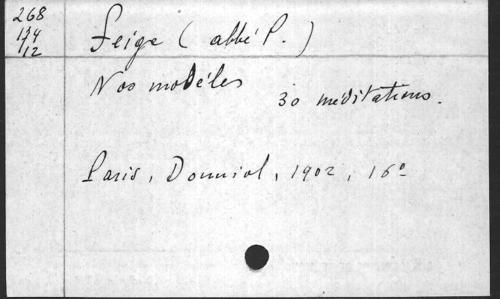 268
134
12
Feige (abbé P.)
Nos modèles
30 méditations.
Paris, Douniol, 1902, 16º